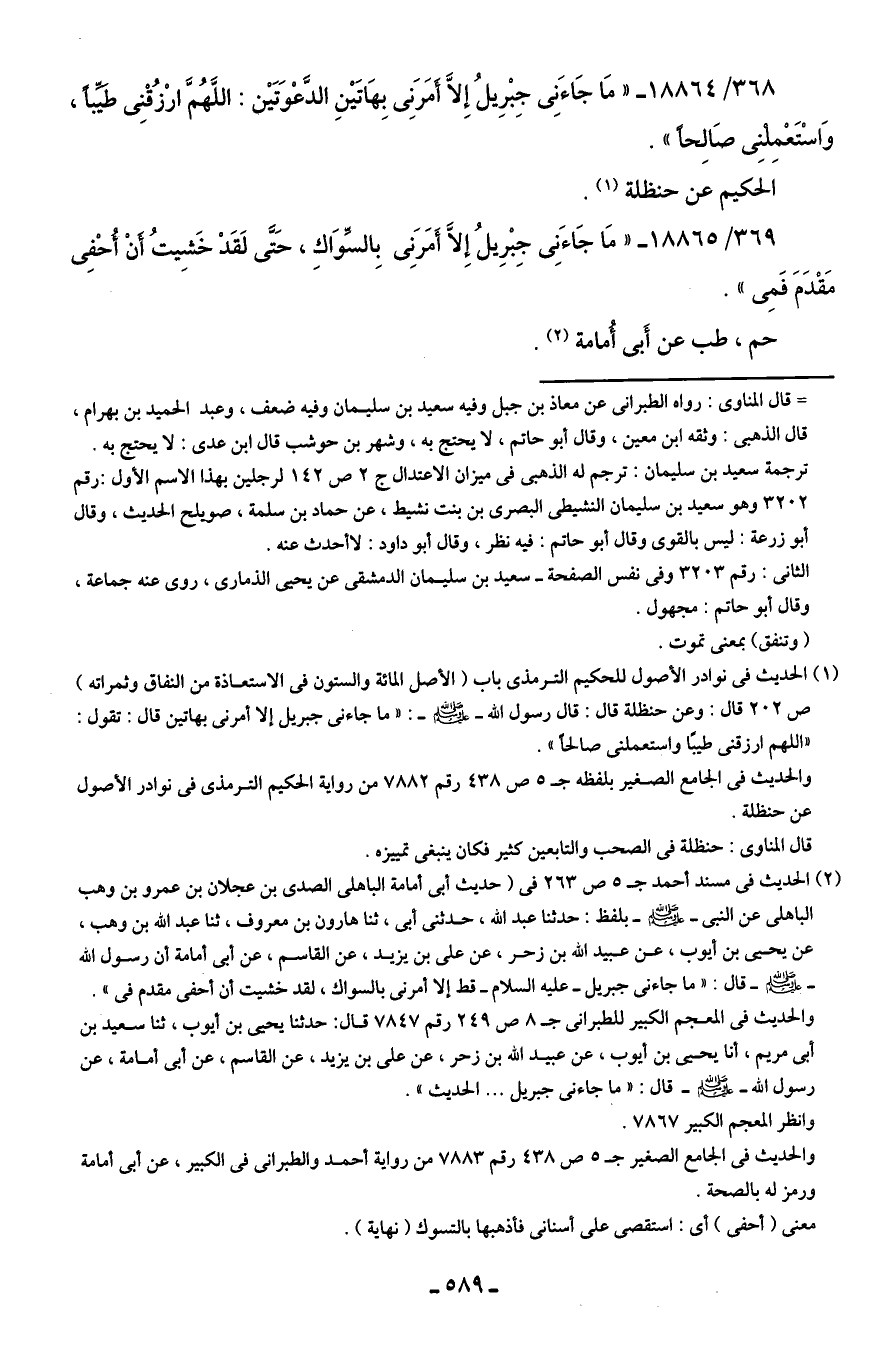 ٣٦٨/ ١٨٨٦٤ـ « مَا جَاءَنِى جِبْرِيلُ إِلاَّ أَمَرَنِى بِهَاتَيْنِ الدَّعْوَتَيْنِ : اللَّهُمَّ ارْزُقْنِى طَيِّباً ،
وَاسْتَعْمِلْنِى صَالِحاً » .
الحكيم عن حنظلة (١) .
٣٦٩/ ١٨٨٦٥ـ « مَا جَاءَنِى جِبْرِيلُ إِلاَّ أَمَرَنِى بِالسِّوَاكِ ، حَتَّى لَقَدْ خَشِيتُ أَنْ أُحْفِى
مَقْدَمَ فَمِى » .
حم ، طب عن أَبى أُمامة (٢) .
= قال المناوى : رواه الطبرانى عن معاذ بن جبل وفيه سعيد بن سليمان وفيه ضعف ، وعبد الحميد بن بهرام ،
قال الذهبى : وثقه ابن معين ، وقال أبو حاتم ، لا يحتج به ، وشهر بن حوشب قال ابن عدى : لا يحتج به .
ترجمة سعيد بن سليمان : ترجم له الذهبى فى ميزان الاعتدال ج ٢ ص ١٤٢ لرجلين بهذا الاسم الأول :رقم
٣٢٠٢ وهو سعيد بن سليمان النشيطى البصرى بن بنت نشيط ، عن حماد بن سلمة ، صويلح الحديث ، وقال
أبو زرعة : ليس بالقوى وقال أبو حاتم : فيه نظر ، وقال أبو داود : لاأحدث عنه .
الثانى : رقم ٣٢٠٣ وفى نفس الصفحة ـ سعيد بن سليمان الدمشقى عن يحيى الذمارى ، روى عنه جماعة ،
وقال أبو حاتم : مجهول .
( وتنفق) بمعنى تموت .
(١) الحديث فى نوادر الأصول للحكيم الترمذى باب ( الأصل المائة والستون فى الاستعاذة من النفاق وثمراته )
ص ٢٠٢ قال : وعن حنظلة قال : قال رسول الله ـ ﷺ ـ : « ما جاءنى جبريل إلا أمرنى بهاتين قال : تقول :
«اللهم ارزقنى طيبًا واستعملنى صالحاً » .
والحديث فى الجامع الصغير بلفظه جـ ٥ ص ٤٣٨ رقم ٧٨٨٢ من رواية الحكيم الترمذى فى نوادر الأصول
عن حنظلة .
قال المناوى : حنظلة فى الصحب والتابعين كثير فكان ينبغى تمييزه .
(٢) الحديث فى مسند أحمد جـ ٥ ص ٢٦٣ فى ( حديث أبى أمامة الباهلى الصدى بن عجلان بن عمرو بن وهب
الباهلى عن النبى ـ ﷺ ـ بلفظ : حدثنا عبد الله ، حدثنى أبى ، ثنا هارون بن معروف ، ثنا عبد الله بن وهب ،
عن يحيى بن أيوب ، عن عبيد الله بن زحر ، عن على بن يزيد ، عن القاسم ، عن أبى أمامة أن رسول الله
ـ ﷺ ـ قال : « ما جاءنى جبريل ـ عليه السلام ـ قط إلا أمرنى بالسواك ، لقد خشيت أن أحفى مقدم فى » .
والحديث فى المعجم الكبير للطبرانى جـ ٨ ص ٢٤٩ رقم ٧٨٤٧ قال: حدثنا يحيى بن أيوب ، ثنا سعيد بن
أبى مريم ، أنا يحيى بن أيوب ، عن عبيد الله بن زحر ، عن على بن يزيد ، عن القاسم ، عن أبى أمامة ، عن
رسول الله ـ ﷺ ـ قال : « ما جاءنى جبريل ... الحديث » .
وانظر المعجم الكبير ٧٨٦٧ .
والحديث فى الجامع الصغير جـ ٥ ص ٤٣٨ رقم ٧٨٨٣ من رواية أحمد والطبرانى فى الكبير ، عن أبى أمامة
ورمز له بالصحة .
معنى ( أحفى ) أى : استقصى على أسنانى فأذهبها بالتسوك ( نهاية ) .
ـ ٥٨٩ ـ